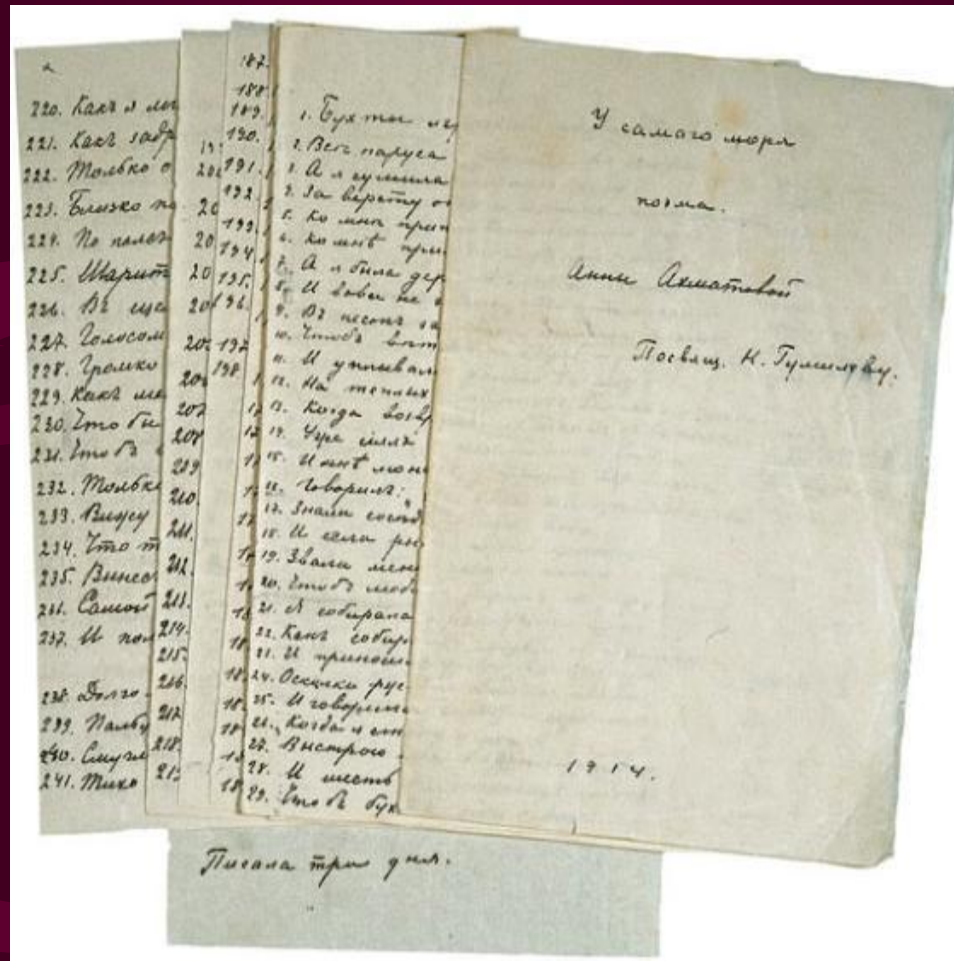 220. Какъ я
221. Какъ задр
222. Только о
223. Близко по
224. По
225. Шарит
226. Въ ще
227. Голосом
228. Громко
229. Какъ
230. Что бы
231. Чтобъ
232. Только
233. Вижу
234. Что т
235. Вынес
236. Самой
237. И пол
238. Долго
239. Пальц
240. Смугл
241. Тихо
207
208
209
210.
211.
212.
213.
214.
215.
216.
217
218.
187.
188.
189.
190.
191.
192.
193.
194.
195.
196.
197
198
1. Бухты
2. Всѣ паруса
3. А я сушила
4. За версту от
5. Ко мнѣ при
6. Ко мнѣ при
7. А я была дер
8. И вовсе не
9. Въ песокъ за
10. Чтобъ
11. И уплывал
12. На теплых
13. Когда возвр
14. Уже сіялъ
15. И мнѣ мон
16. Говорилъ:
17. Знали сосѣд
18. И если ры
19. Звали мен
20. Чтобъ люд
21. Я собирала
22. Какъ собир
23. И приноси
24. Осколки
25. И говорила
26. Когда я ст
27. Выстрою
28. И шесть
29. Чтобъ бух
У самаго моря
поэма.
Анны Ахматовой
Посвящ. Н. Гумилеву.
1914.
Писала три дня.